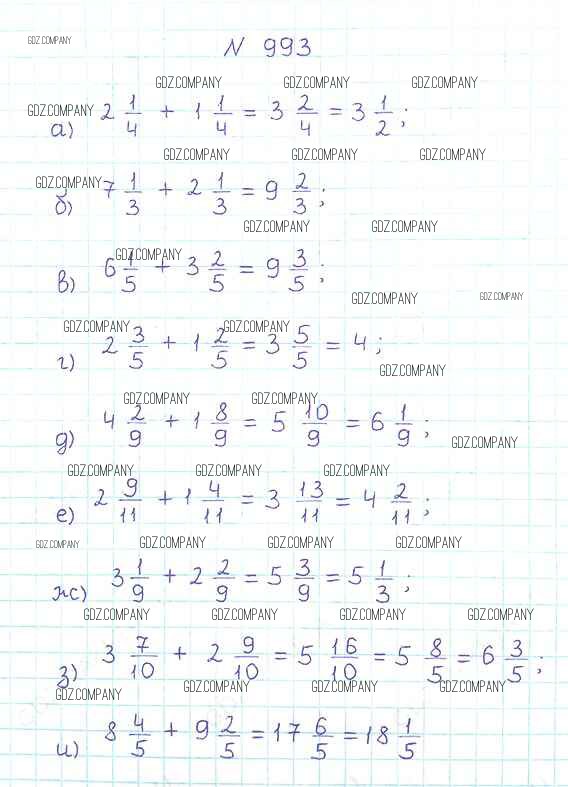 GDZ.COMPANY
N 993
GDZ.COMPANY GDZ.COMPANY GDZ.COMPANY
GDZ.COMPANY
а) 2 1/4 + 1 1/4 = 3 2/4 = 3 1/2;
GDZ.COMPANY GDZ.COMPANY GDZ.COMPANY
GDZ.COMPANY
б) 7 1/3 + 2 1/3 = 9 2/3;
GDZ.COMPANY GDZ.COMPANY
GDZ.COMPANY
в) 6 1/5 + 3 2/5 = 9 3/5;
GDZ.COMPANY GDZ.COMPANY
GDZ.COMPANY GDZ.COMPANY
г) 2 3/5 + 1 2/5 = 3 5/5 = 4;
GDZ.COMPANY
GDZ.COMPANY GDZ.COMPANY
д) 4 2/9 + 1 8/9 = 5 10/9 = 6 1/9;
GDZ.COMPANY
GDZ.COMPANY GDZ.COMPANY GDZ.COMPANY
е) 2 9/11 + 1 4/11 = 3 13/11 = 4 2/11;
GDZ.COMPANY GDZ.COMPANY GDZ.COMPANY GDZ.COMPANY
ж) 3 1/9 + 2 2/9 = 5 3/9 = 5 1/3;
GDZ.COMPANY GDZ.COMPANY GDZ.COMPANY GDZ.COMPANY
з) 3 7/10 + 2 9/10 = 5 16/10 = 5 8/5 = 6 3/5;
GDZ.COMPANY GDZ.COMPANY GDZ.COMPANY GDZ.COMPANY
и) 8 4/5 + 9 2/5 = 17 6/5 = 18 1/5